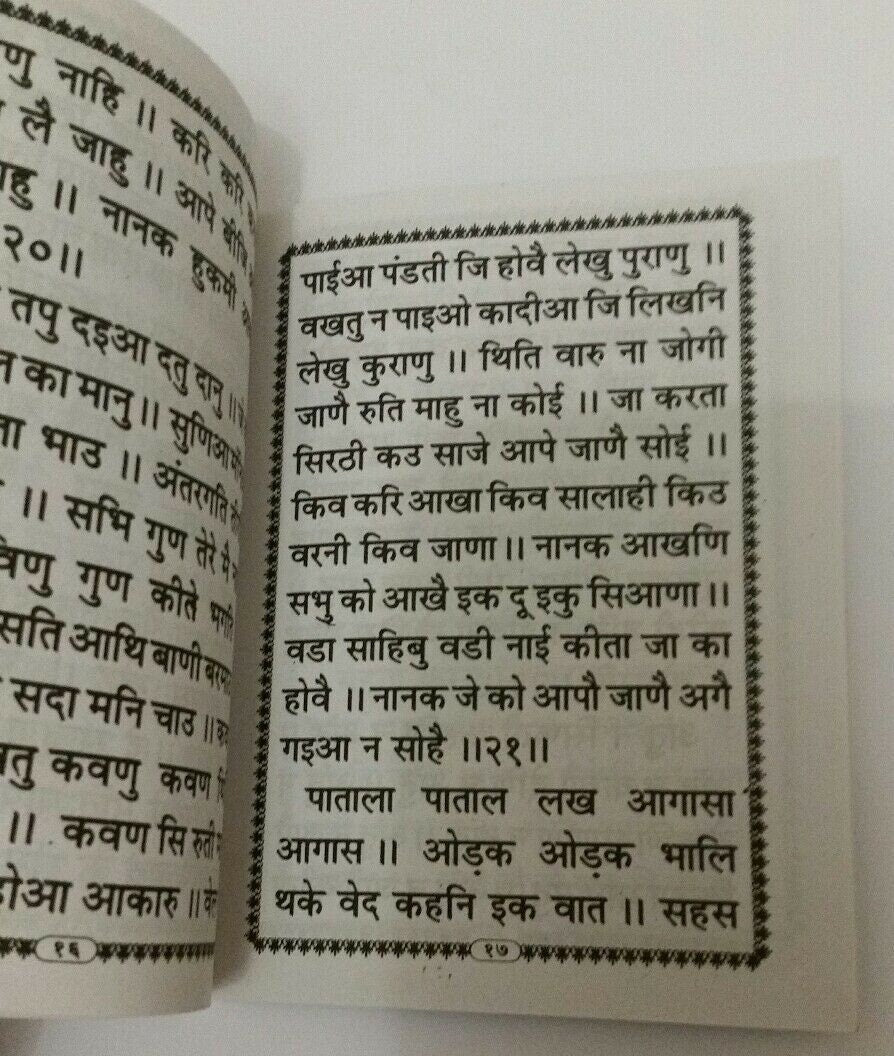 णु नाहि ।। करि करि
लै जाहु ।। आपे बीजि
।। नानक हुकमी
२०।।
तपु दइआ दतु दानु ।।
का मानु ।। सुणिआ
भाउ ।। अंतरगति
।। सभि गुण तेरे मै
विणु गुण कीते भगति
सति आथि बाणी बरमाउ
सदा मनि चाउ ।।
कवणु कवण
।। कवण सि रुती
होआ आकारु ।।
१६
पाईआ पंडती जि होवै लेखु पुराणु ।।
वखतु न पाइओ कादीआ जि लिखनि
लेखु कुराणु ।। थिति वारु ना जोगी
जाणै रुति माहु ना कोई ।। जा करता
सिरठी कउ साजे आपे जाणै सोई ।।
किव करि आखा किव सालाही किठ
वरनी किव जाणा ।। नानक आखणि
सभु को आखै इक दू इकु सिआणा ।।
वडा साहिबु वडी नाई कीता जा का
होवै ।। नानक जे को आपौ जाणै अगै
गइआ न सोहै ।।२१।।
पाताला पाताल लख आगासा
आगास ।। ओड़क ओड़क भालि
थके वेद कहनि इक वात ।। सहस
१७